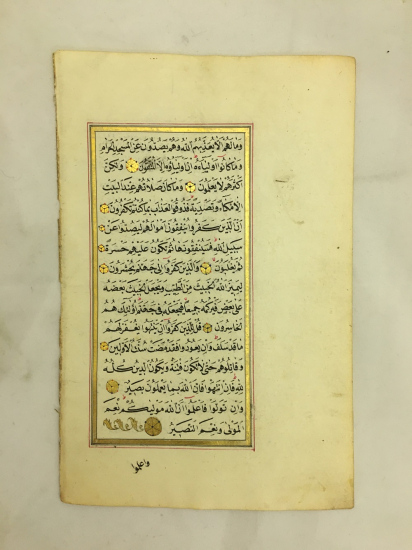 وَمَا لَهُمْ اَلَّا يُعَذِّبَهُمُ اللّٰهُ وَهُمْ يَصُدُّونَ عَنِ الْمَسْجِدِ الْحَرَامِ
وَمَا كَانُوا اَوْلِيَاءَهُ اِنْ اَوْلِيَاؤُهُ اِلَّا الْمُتَّقُونَ وَلٰكِنَّ
اَكْثَرَهُمْ لَا يَعْلَمُونَ وَمَا كَانَ صَلَاتُهُمْ عِنْدَ الْبَيْتِ
اِلَّا مُكَاءً وَتَصْدِيَةً فَذُوقُوا الْعَذَابَ بِمَا كُنْتُمْ تَكْفُرُونَ
اِنَّ الَّذِينَ كَفَرُوا يُنْفِقُونَ اَمْوَالَهُمْ لِيَصُدُّوا عَنْ
سَبِيلِ اللّٰهِ فَسَيُنْفِقُونَهَا ثُمَّ تَكُونُ عَلَيْهِمْ حَسْرَةً
ثُمَّ يُغْلَبُونَ وَالَّذِينَ كَفَرُوا اِلٰى جَهَنَّمَ يُحْشَرُونَ
لِيَمِيزَ اللّٰهُ الْخَبِيثَ مِنَ الطَّيِّبِ وَيَجْعَلَ الْخَبِيثَ بَعْضَهُ
عَلٰى بَعْضٍ فَيَرْكُمَهُ جَمِيعًا فَيَجْعَلَهُ فِى جَهَنَّمَ اُولٰئِكَ هُمُ
الْخَاسِرُونَ قُلْ لِلَّذِينَ كَفَرُوا اِنْ يَنْتَهُوا يُغْفَرْ لَهُمْ
مَا قَدْ سَلَفَ وَاِنْ يَعُودُوا فَقَدْ مَضَتْ سُنَّتُ الْاَوَّلِينَ
وَقَاتِلُوهُمْ حَتّٰى لَا تَكُونَ فِتْنَةٌ وَيَكُونَ الدِّينُ كُلُّهُ
لِلّٰهِ فَاِنِ انْتَهَوْا فَاِنَّ اللّٰهَ بِمَا يَعْمَلُونَ بَصِيرٌ
وَاِنْ تَوَلَّوْا فَاعْلَمُوا اَنَّ اللّٰهَ مَوْلٰيكُمْ نِعْمَ
الْمَوْلٰى وَنِعْمَ النَّصِيرُ
واعلموا